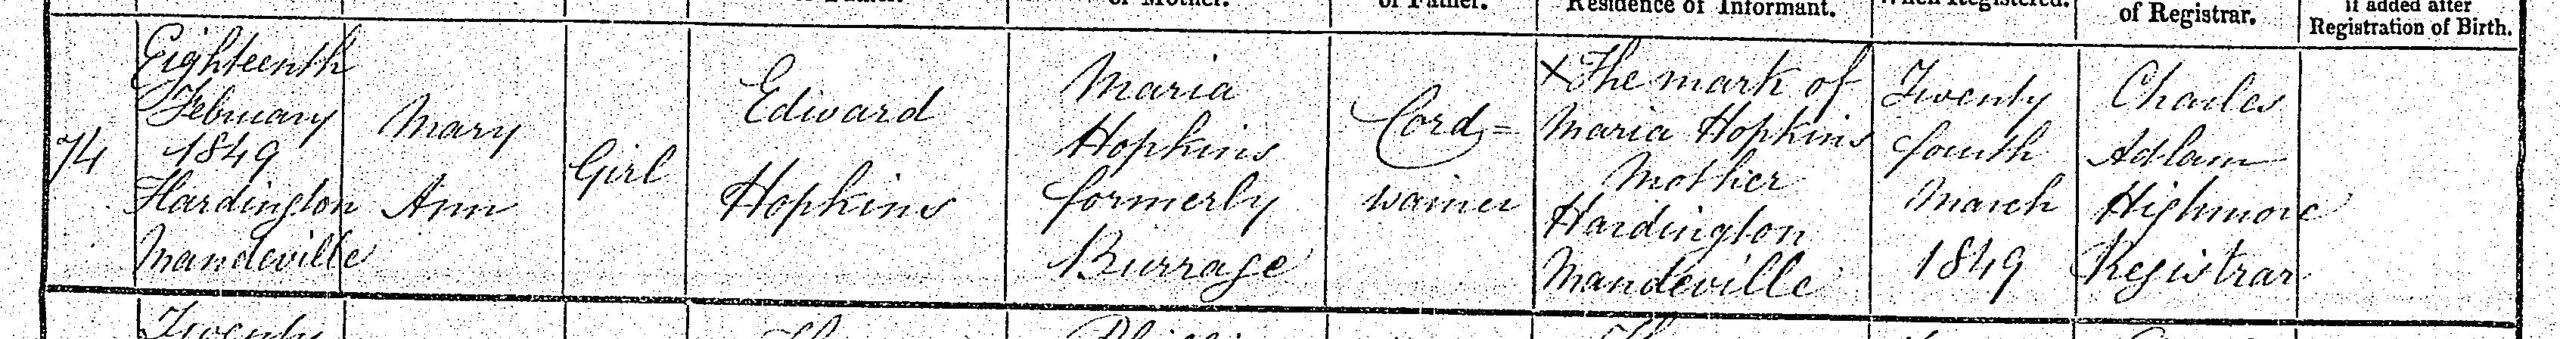 of Father.
Residence of Informant.
When Registered.
of Registrar.
if added after
Registration of Birth.
74
Eighteenth
February
1849
Hardington
Mandeville
Mary
Ann
Girl
Edward
Hopkins
Maria
Hopkins
formerly
Burrage
Cord=
wainer
X The mark of
Maria Hopkins
Mother
Hardington
Mandeville
Twenty
fourth
March
1849
Charles
Adlam
Highmore
Registrar
Twenty